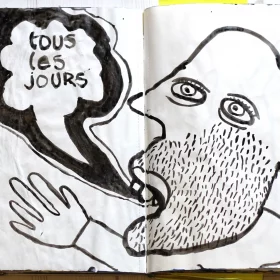 tous
les
JOURS